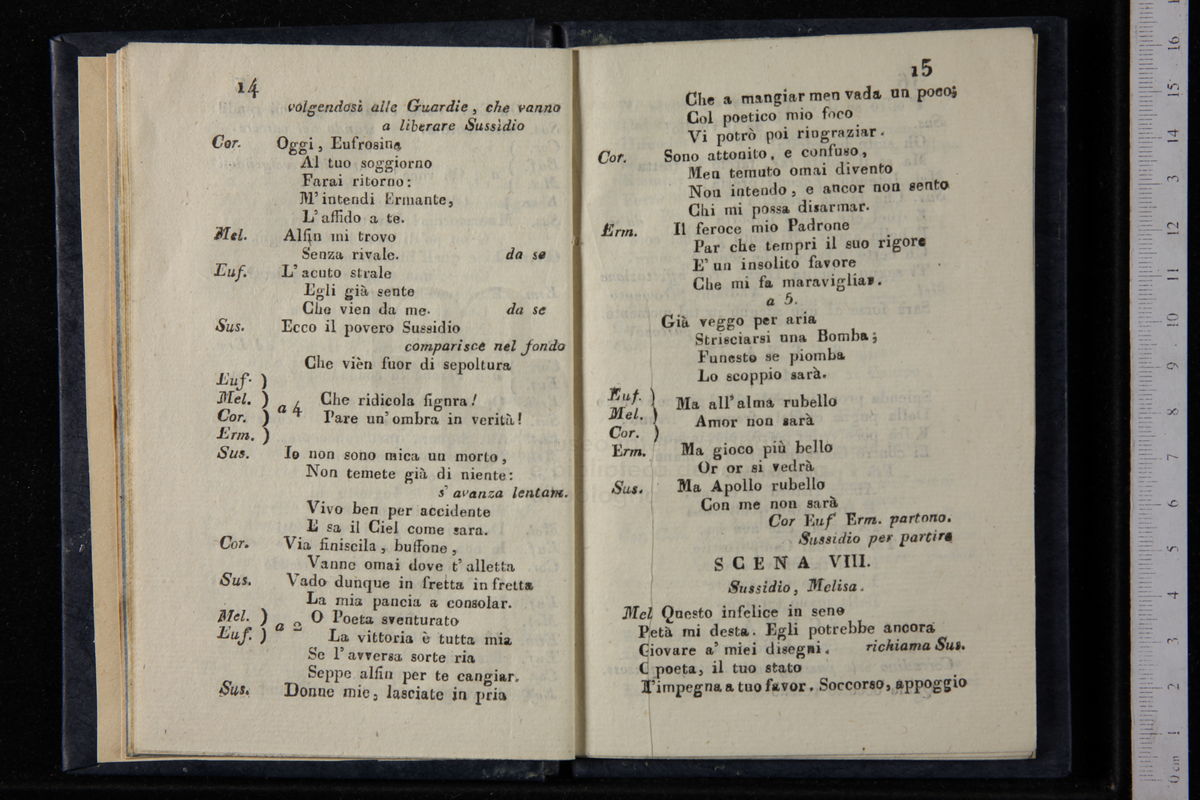 14
volgendosi alle Guardie, che vanno
a liberare Sussidio
Cor. Oggi, Eufrosina
Al tuo soggiorno
Farai ritorno:
M'intendi Ermante,
L'affido a te.
Mel. Alfin mi trovo
Senza rivale. da se
Euf. L'acuto strale
Egli già sente
Che vien da me. da se
Sus. Ecco il povero Sussidio
comparisce nel fondo
Che vièn fuor di sepoltura
Euf. )
Mel. ) Che ridicola figura!
Cor. ) a 4 Pare un'ombra in verità!
Erm. )
Sus. Io non sono mica un morto,
Non temete già di niente:
s'avanza lentam.
Vivo ben per accidente
E sa il Ciel come sara.
Cor. Via finiscila, buffone,
Vanne omai dove t'alletta
Sus. Vado dunque in fretta in fretta
La mia pancia a consolar.
Mel. ) a 2 O Poeta sventurato
Euf. ) La vittoria è tutta mia
Se l'avversa sorte ria
Seppe alfin per te cangiar.
Sus. Donne mie, lasciate in pria
15
Che a mangiar men vada un poco;
Col poetico mio foco
Vi potrò poi ringraziar.
Cor. Sono attonito, e confuso,
Men temuto omai divento
Non intendo, e ancor non sento
Chi mi possa disarmar.
Erm. Il feroce mio Padrone
Par che tempri il suo rigore
E' un insolito favore
Che mi fa maravigliar.
a 5.
Già veggo per aria
Strisciarsi una Bomba;
Funesto se piomba
Lo scoppio sarà.
Euf. )
Mel. ) Ma all'alma rubello
Cor. ) Amor non sarà
Erm. Ma gioco più bello
Or or si vedrà
Sus. Ma Apollo rubello
Con me non sarà
Cor Euf Erm. partono.
Sussidio per partire
SCENA VIII.
Sussidio, Melisa.
Mel Questo infelice in seno
Petà mi desta. Egli potrebbe ancora
Giovare a' miei disegni. richiama Sus.
O poeta, il tuo stato
T'impegna a tuo favor. Soccorso, appoggio